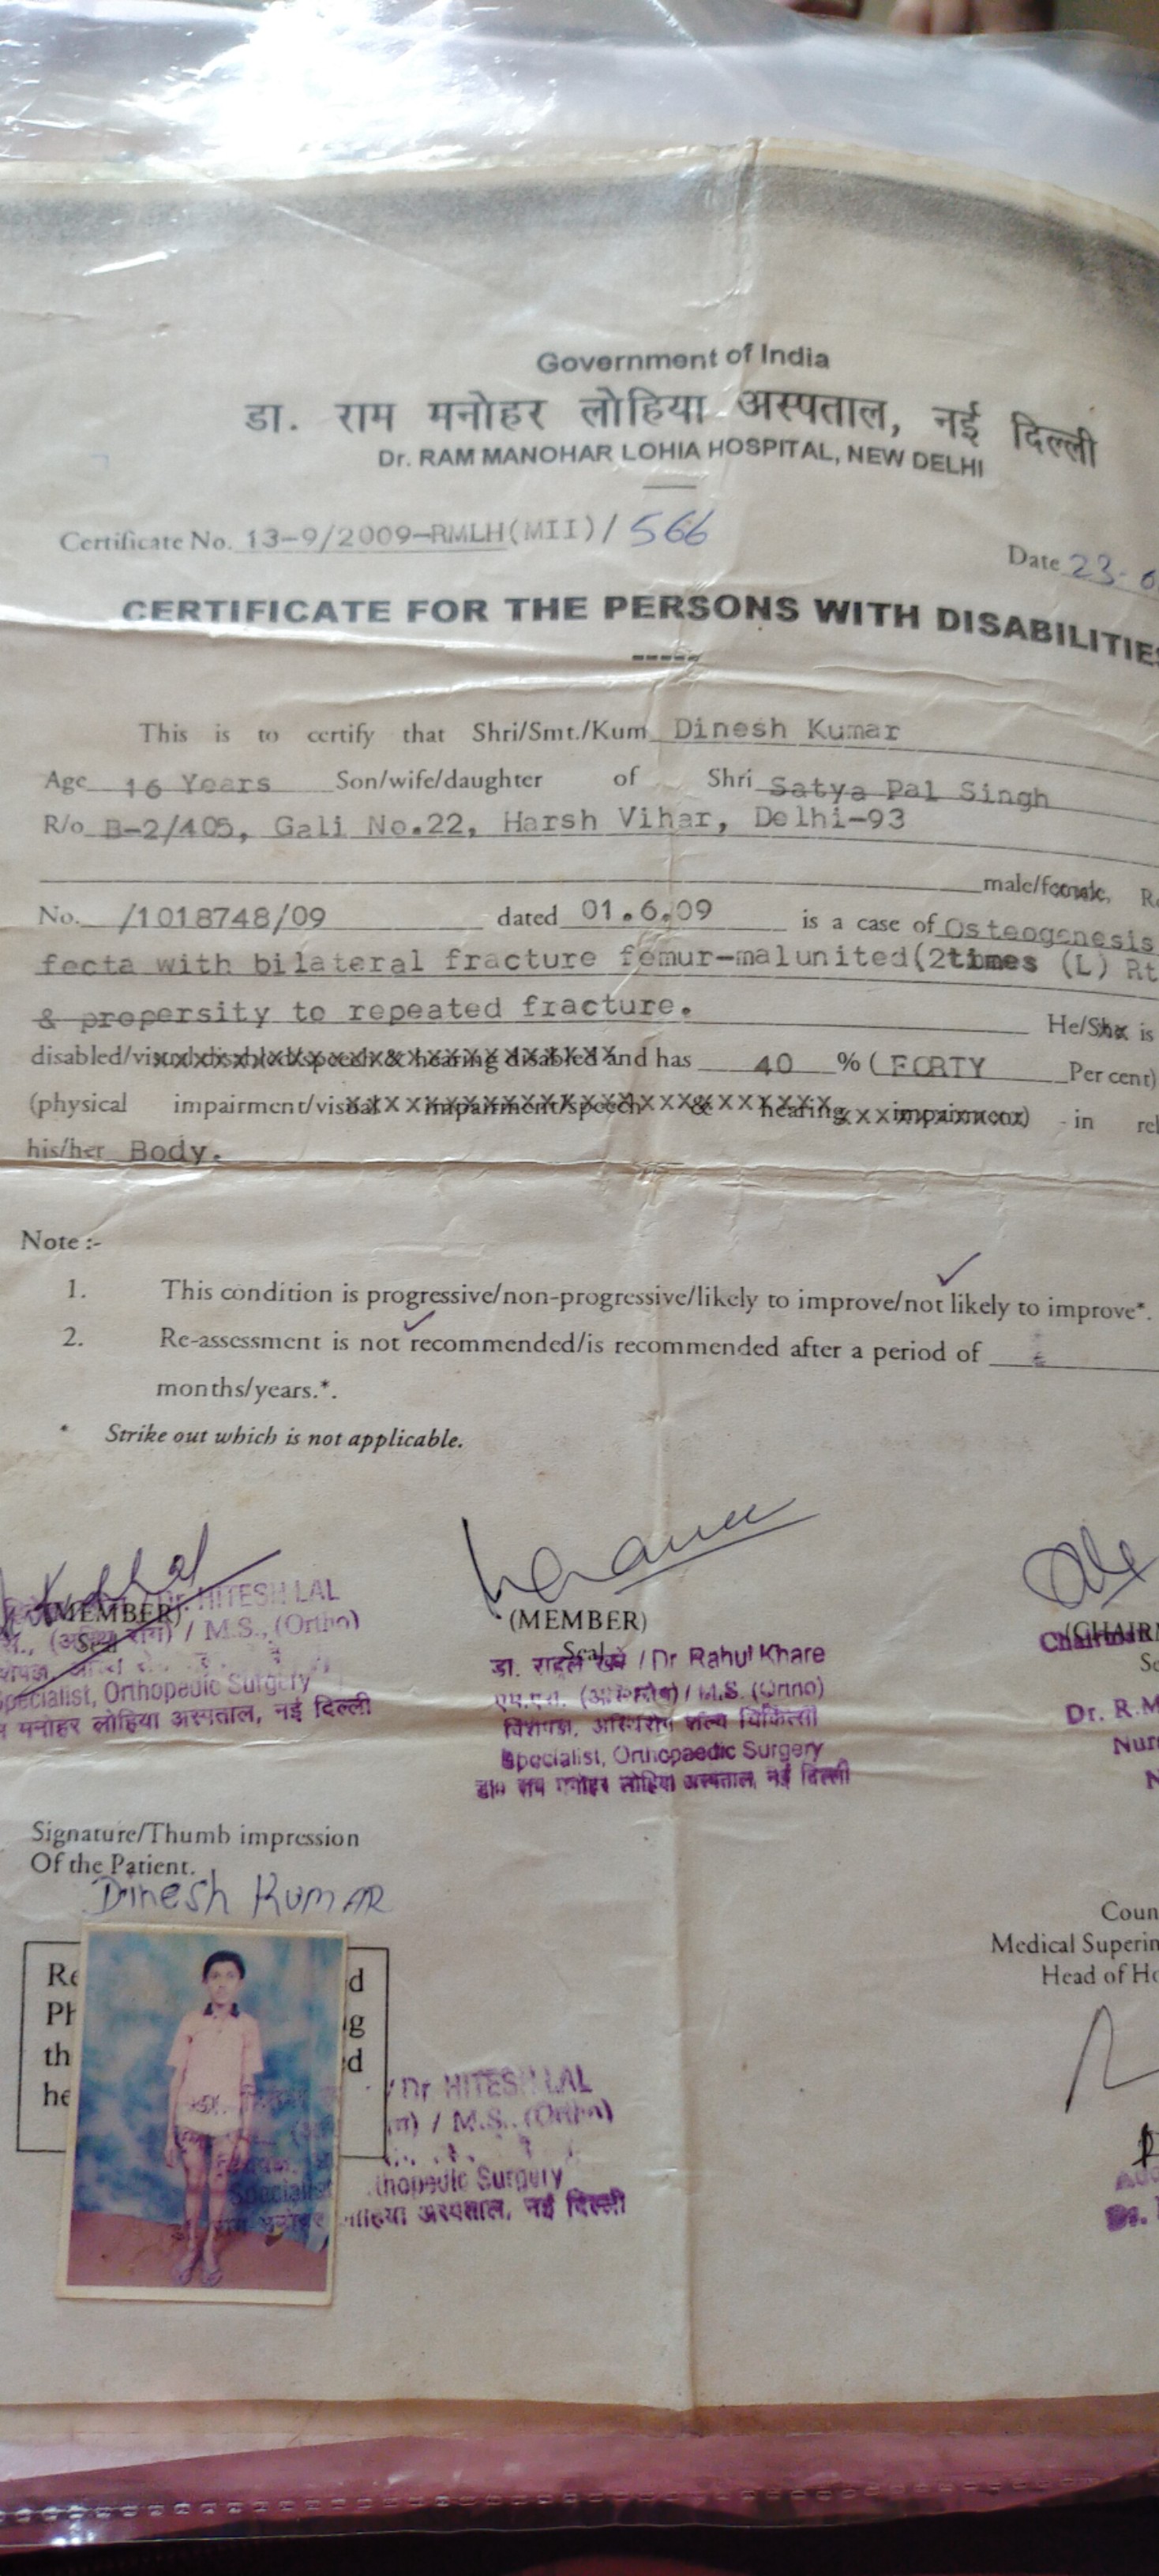 Government of India
डा. राम मनोहर लोहिया अस्पताल, नई दिल्ली
Dr. RAM MANOHAR LOHIA HOSPITAL, NEW DELHI
Certificate No. 13-9/2009-RMLH(MII)/ 566
Date 23-0
CERTIFICATE FOR THE PERSONS WITH DISABILITIES
This is to certify that Shri/Smt./Kum Dinesh Kumar
Age 16 Years Son/wife/daughter of Shri Satya Pal Singh
R/o B-2/405, Gali No.22, Harsh Vihar, Delhi-93
male/female, Re
No. /1018748/09 dated 01.6.09 is a case of Osteogenesis
fecta with bilateral fracture femur-malunited(2times (L) Rt
& propersity to repeated fracture. He/She is
disabled/visual disabled/speech & hearing disabled and has 40 % ( FORTY Per cent)
(physical impairment/visual impairment/speech & hearing impairment) in rel
his/her Body.
Note :-
1. This condition is progressive/non-progressive/likely to improve/not likely to improve*.
2. Re-assessment is not recommended/is recommended after a period of
months/years.*.
* Strike out which is not applicable.
Dr. HITESH LAL
(MEMBER)
Seal
(अस्थि रोग) / M.S., (Ortho)
Specialist, Orthopedic Surgery
मनोहर लोहिया अस्पताल, नई दिल्ली
(MEMBER)
Seal
डा. राहुल खरे / Dr Rahul Khare
एम.एस. (अस्थि रोग) / M.S. (Ortho)
विशेषज्ञ, अस्थिरोग शल्य चिकित्सा
Specialist, Orthopaedic Surgery
डा० राम मनोहर लोहिया अस्पताल, नई दिल्ली
(CHAIRM
Chairman
Se
Dr. R.M
Nur
N
Signature/Thumb impression
Of the Patient.
Dinesh KUMAR
Coun
Medical Superin
Head of Ho
Re
d
Ph
g
th
d
he
/ Dr HITESH LAL
/ M.S., (Ortho)
Specialist
thopedic Surgery
लोहिया अस्पताल, नई दिल्ली